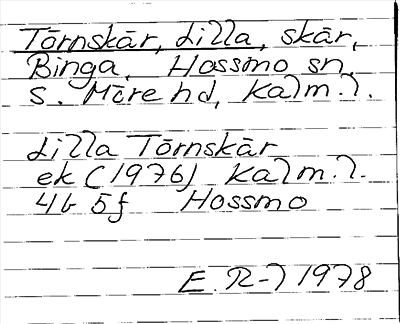 Törnskär, Lilla, skär,
Binga, Hossmo sn,
S. Möre hd, Kalm. l.
Lilla Törnskär
ek (1976) Kalm. l.
4G 5f Hossmo
E. R-l 1978